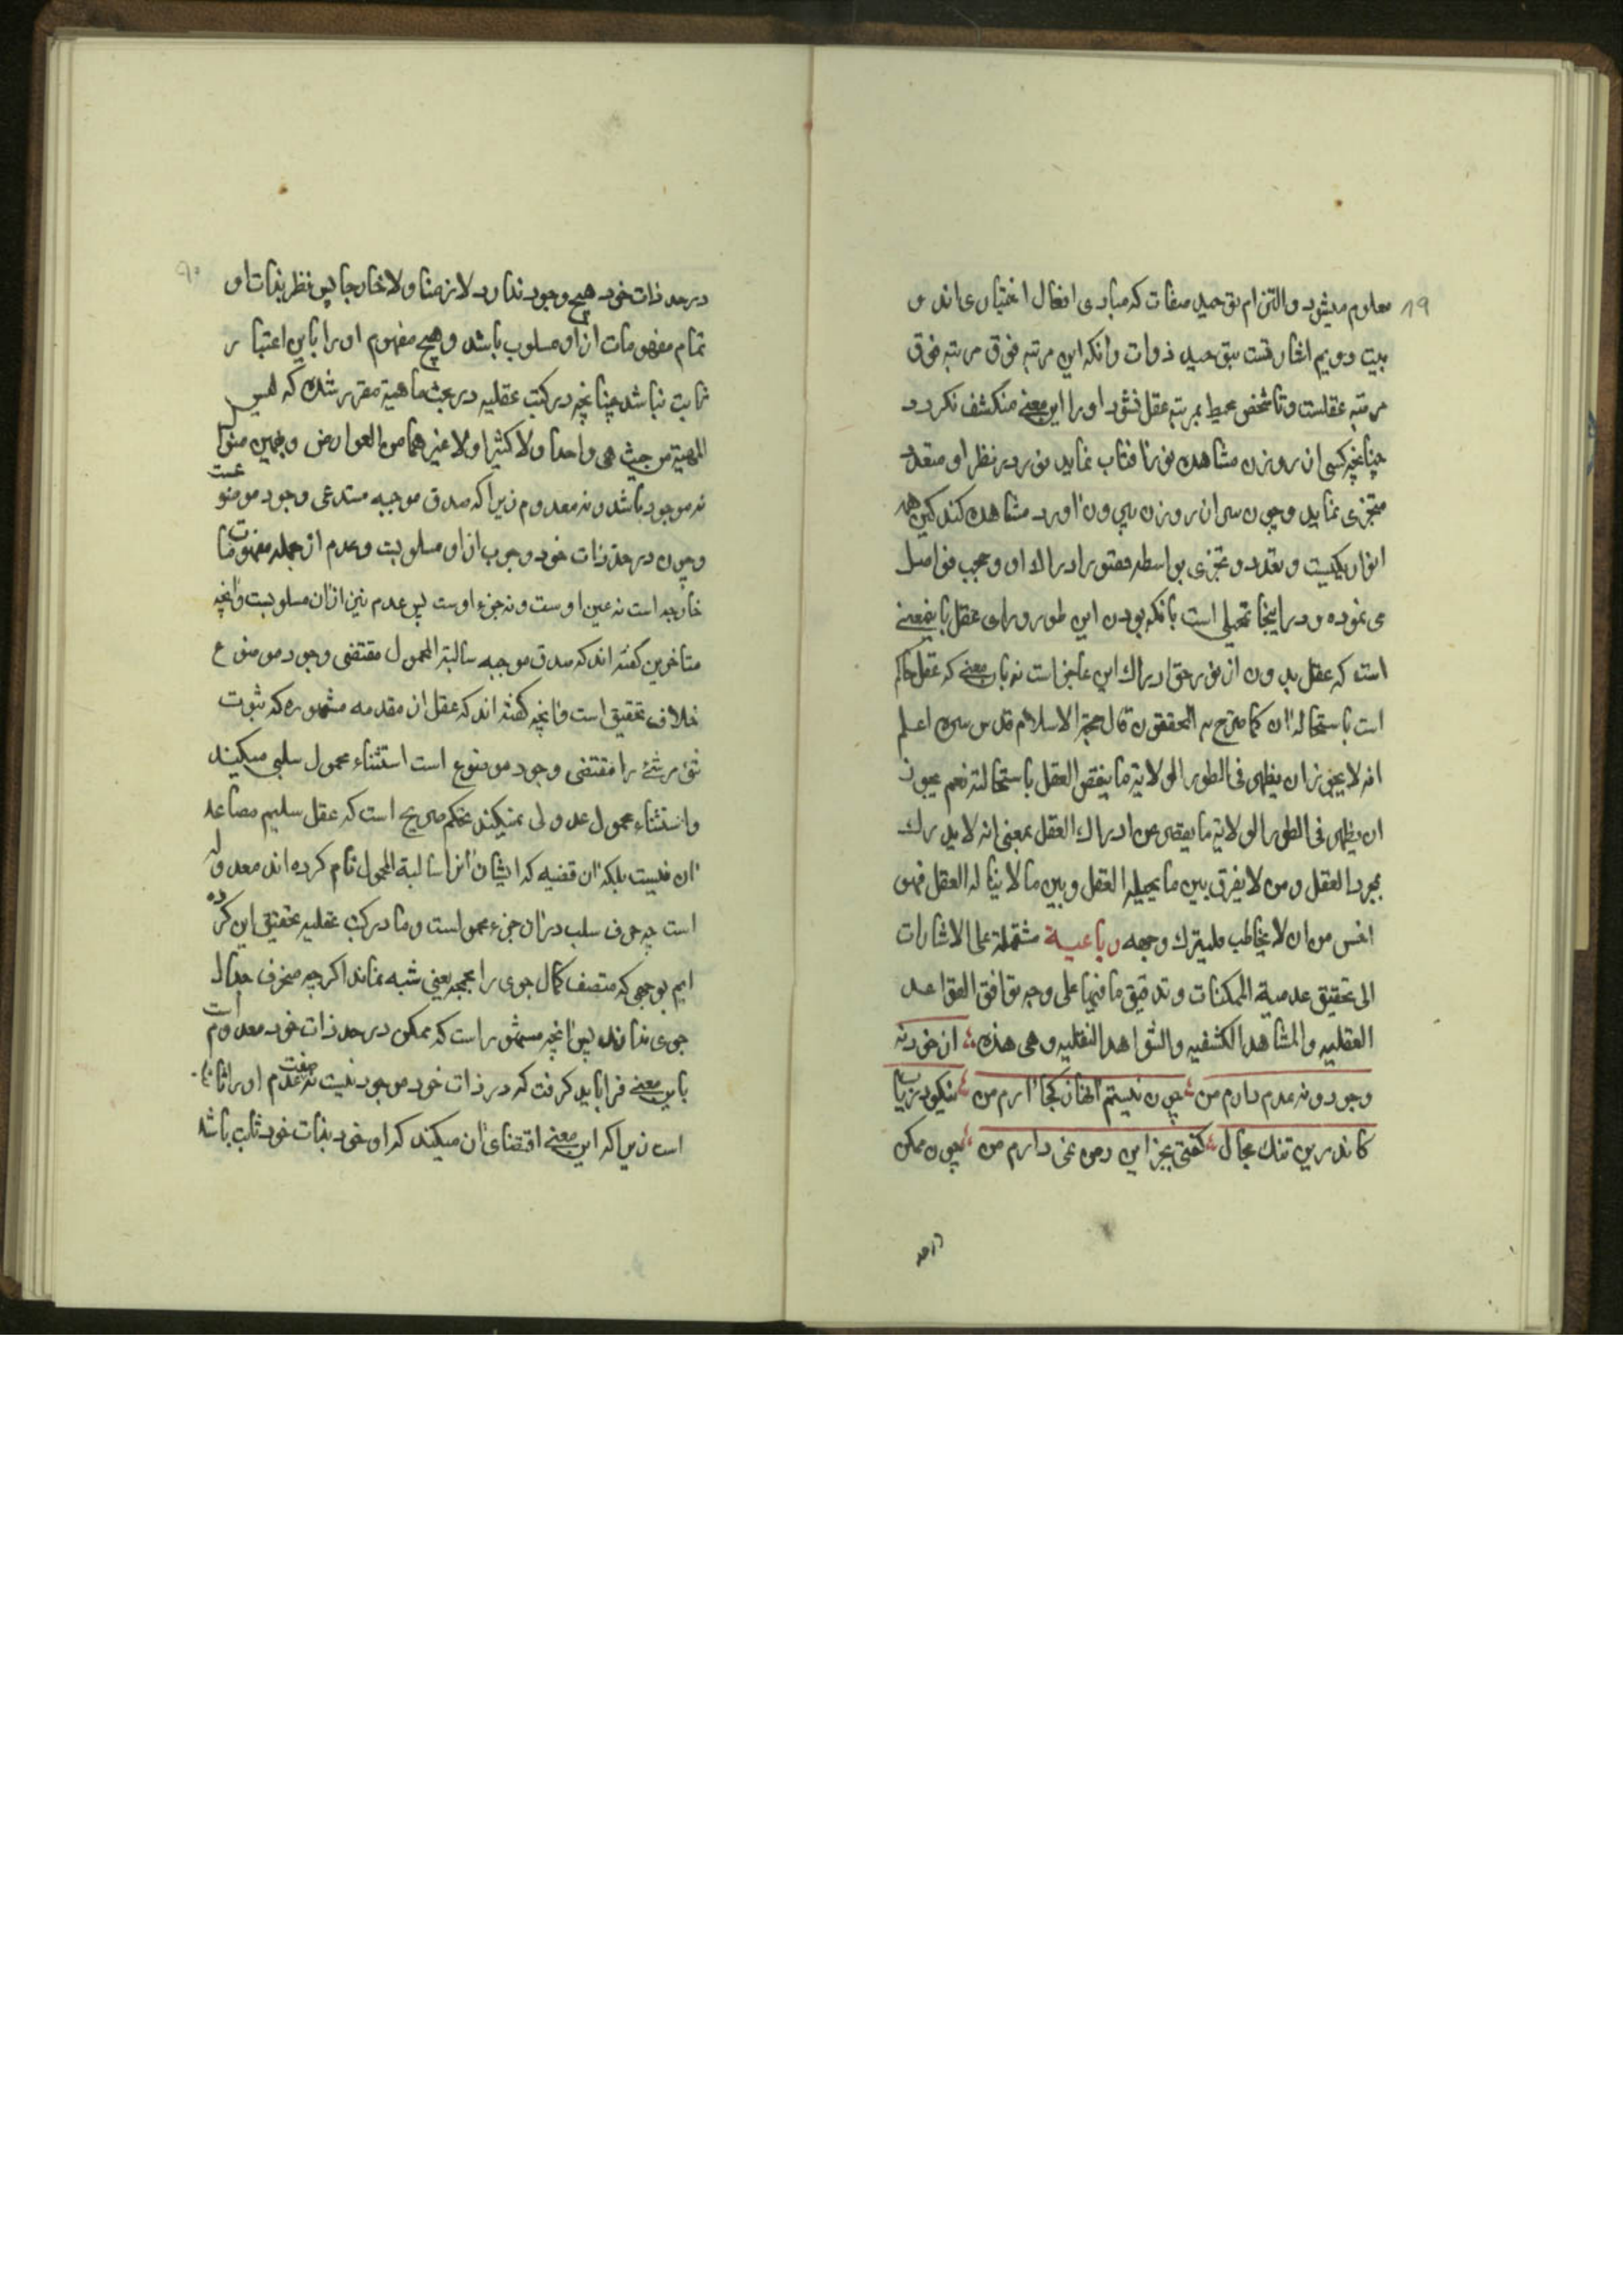 ۱۹
معلوم میشود والتزام توحید صفات که مبادی افعال اختیاری اند و
بیت دویم اشارتست بتوحید ذوات وانکه این مرتبه فوق مرتبه فوق
مرتبه عقلست وتا شخص محیط بمرتبه عقل نشود او را این معنی منکشف نکردد
چنانچه کسی از روزن مشاهده نور افتاب نماید نور در نظر او متعدد
متجزی نماید وچون سر از روزن بیرون اورد مشاهده کند کین همه
انوار یکیست وتعدد وتجزی بواسطه قصور ادراك او وحجب فواصل
می نموده ودر اینجا تمحلی است بانکه بودن این طور ورای عقل باینمعنی
است که عقل بدون از نور حق ادراك این عاجز است نه بان معنی که عقل حاکم
است باستحاله ان کما صرح به المحققون قال حجة الاسلام قدس سره اعلم
انه لا یجوز ان یظهر فی الطور الولایة ما یقضی العقل باستحالته نعم یجوز
ان یظهر فی الطور الولایة ما یقصر عن ادراك العقل بمعنی انه لا یدرك
بمجرد العقل ومن لا یفرق بین ما یحیله العقل وبین ما لا یناله العقل فهو
اخس من ان لا یخاطب فلیترك وجهه رباعیة مشتملة علی الاشارات
الی تحقیق عدمیة الممکنات وتدقیق ما فیها علی وجه توافق القواعد
العقلیه والمشاهد الکشفیه والشواهد النقلیه وهی هذه از خود نه
وجود ونه عدم دارم من چون نیستم انها ز کجا ارم من نیکو دریاب
کاندرین تنك مجال کفتی بجز این دمی نمی دارم من چون ممکن
درحد
۲۰
درحد ذات خود هیچ وجود ندارد لا زهنا ولا خارجا پس نظر بذات او
تمام مفهومات از او مسلوب باشد وهیچ مفهوم او را باین اعتبار
ثابت نباشد چنانچه در کتب عقلیه در بحث ماهیة مقرر شده که لیس
المهیة من حیث هی واحدا ولا کثیرا ولا غیرهما من العوارض وبهمین منوال
نه موجود باشد ونه معدوم زیرا که صدق موجبه مستدعی وجود موضوعست
وچون درحد ذات خود وجوب از او مسلوبست وعدم از جمله مفهومات
خارجه است نه عین اوست ونه جزء اوست پس عدم نیز از ان مسلوبست وانچه
متاخرین کفته اند که صدق موجبه سالبة المحمول مقتضی وجود موضوع
خلاف تحقیق است وانچه کفته اند که عقل ان مقدمه مشهوره که ثبوت
شئ مرشئ را مقتضی وجود موضوع است استثناء محمول سلبی میکنند
واستثناء محمول عدولی نمیکند تحکم صریح است که عقل سلیم مصاعد
ان نیست بلکه ان قضیه که ایشان انرا سالبة المحمول نام کرده اند معدوله
است چه حرف سلب در ان جزء محمولست وما در کتب عقلیه تحقیق این کرده
ایم بوجهی که منصف کمال جوی را مجمجه یعنی شبه نماند اکرچه منحرف جدال
جوی نداند پس انچه مشهور است که ممکن درحد ذات خود معدوم است
باین معنی فرا باید کرفت که در ذات خود موجود نیست نه صفت عدم او را ثابت
است زیرا که این معنی اقتضای ان میکند که او خود بذات خود ثابت باشد